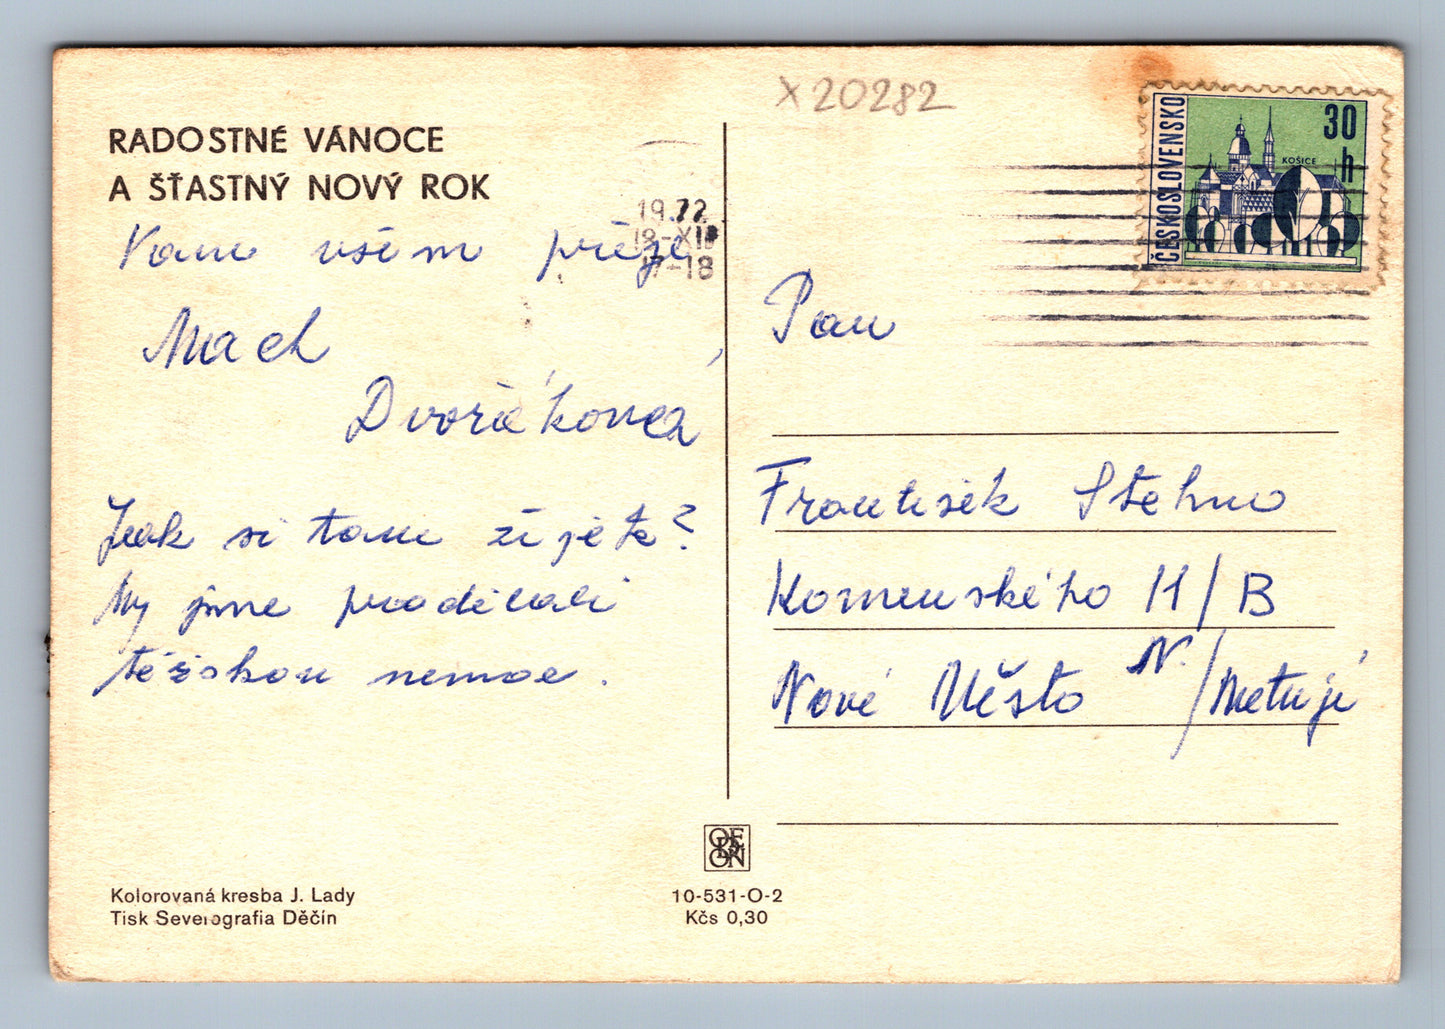 X 20282
RADOSTNÉ VÁNOCE
A ŠŤASTNÝ NOVÝ ROK
Vam všem přeje
Mach
Dvořáková
Jak si tam žijete?
My jsme prodělali
těžskou nemoc.
1972
18-XII
17-18
ČESKOSLOVENSKO
30
h
KOŠICE
Pan
František Stehno
Komenského 11/B
Nové Město N./Metují
ODEON
Kolorovaná kresba J. Lady
Tisk Severografia Děčín
10-531-O-2
Kčs 0,30